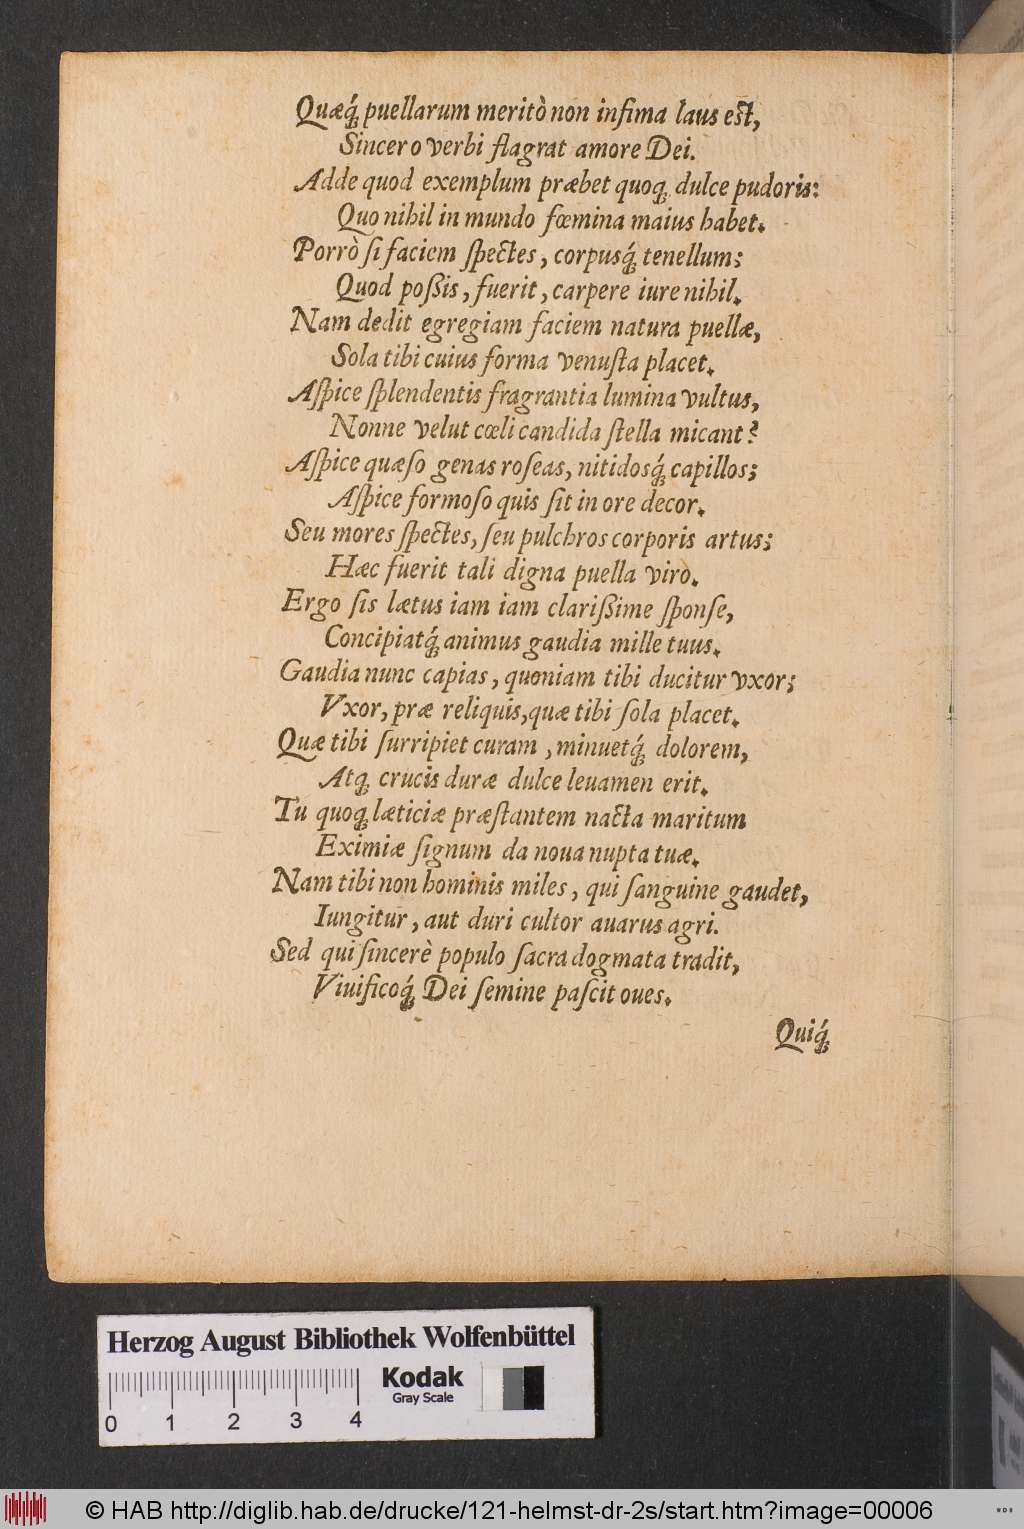 Quæq́; puellarum meritò non infima laus est,
Sincero verbi flagrat amore Dei.
Adde quod exemplum præbet quoq; dulce pudoris:
Quo nihil in mundo fœmina maius habet.
Porrò ſi faciem ſpectes, corpusq́; tenellum;
Quod poßis, fuerit, carpere iure nihil.
Nam dedit egregiam faciem natura puellæ,
Sola tibi cuius forma venuſta placet.
Aſpice ſplendentis fragrantia lumina vultus,
Nonne velut cœli candida ſtella micant?
Aſpice quæſo genas roſeas, nitidosq́; capillos;
Aſpice formoſo quis ſit in ore decor.
Seu mores ſpectes, ſeu pulchros corporis artus;
Hæc fuerit tali digna puella viro.
Ergo ſis lætus iam iam clarißime ſponſe,
Concipiatq́; animus gaudia mille tuus.
Gaudia nunc capias, quoniam tibi ducitur vxor;
Vxor, præ reliquis, quæ tibi ſola placet.
Quæ tibi ſurripiet curam, minuetq́; dolorem,
Atq; crucis duræ dulce leuamen erit.
Tu quoq; læticiæ præſtantem nacta maritum
Eximiæ ſignum da noua nupta tuæ.
Nam tibi non hominis miles, qui ſanguine gaudet,
Iungitur, aut duri cultor auarus agri.
Sed qui ſincerè populo ſacra dogmata tradit,
Viuificoq́; Dei ſemine paſcit oues.
Quiq́;
Herzog August Bibliothek Wolfenbüttel
Kodak
Gray Scale
0 1 2 3 4
© HAB http://diglib.hab.de/drucke/121-helmst-dr-2s/start.htm?image=00006